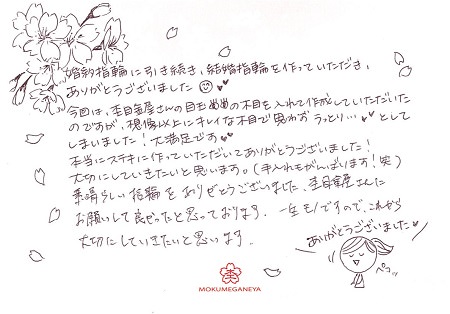 婚約指輪に引き続き、結婚指輪を作っていただき、
ありがとうございました
今回は、杢目金屋さんの目を入れて作成していただいた
のですが、想像以上にキレイな木目で思わずうっとり…♥と
しまいました！大満足です♥♥
本当にステキに作っていただいてありがとうございました！
大切にしていきたいと思います。(手入れもがんばります！笑)
素晴らしい指輪をありがとうございました。杢目金屋さんに
お願いして良かったと思っております。一生モノですので、これから
大切にしていきたいと思います。
ありがとうございました♥
ペコッ
MOKUMEGANEYA